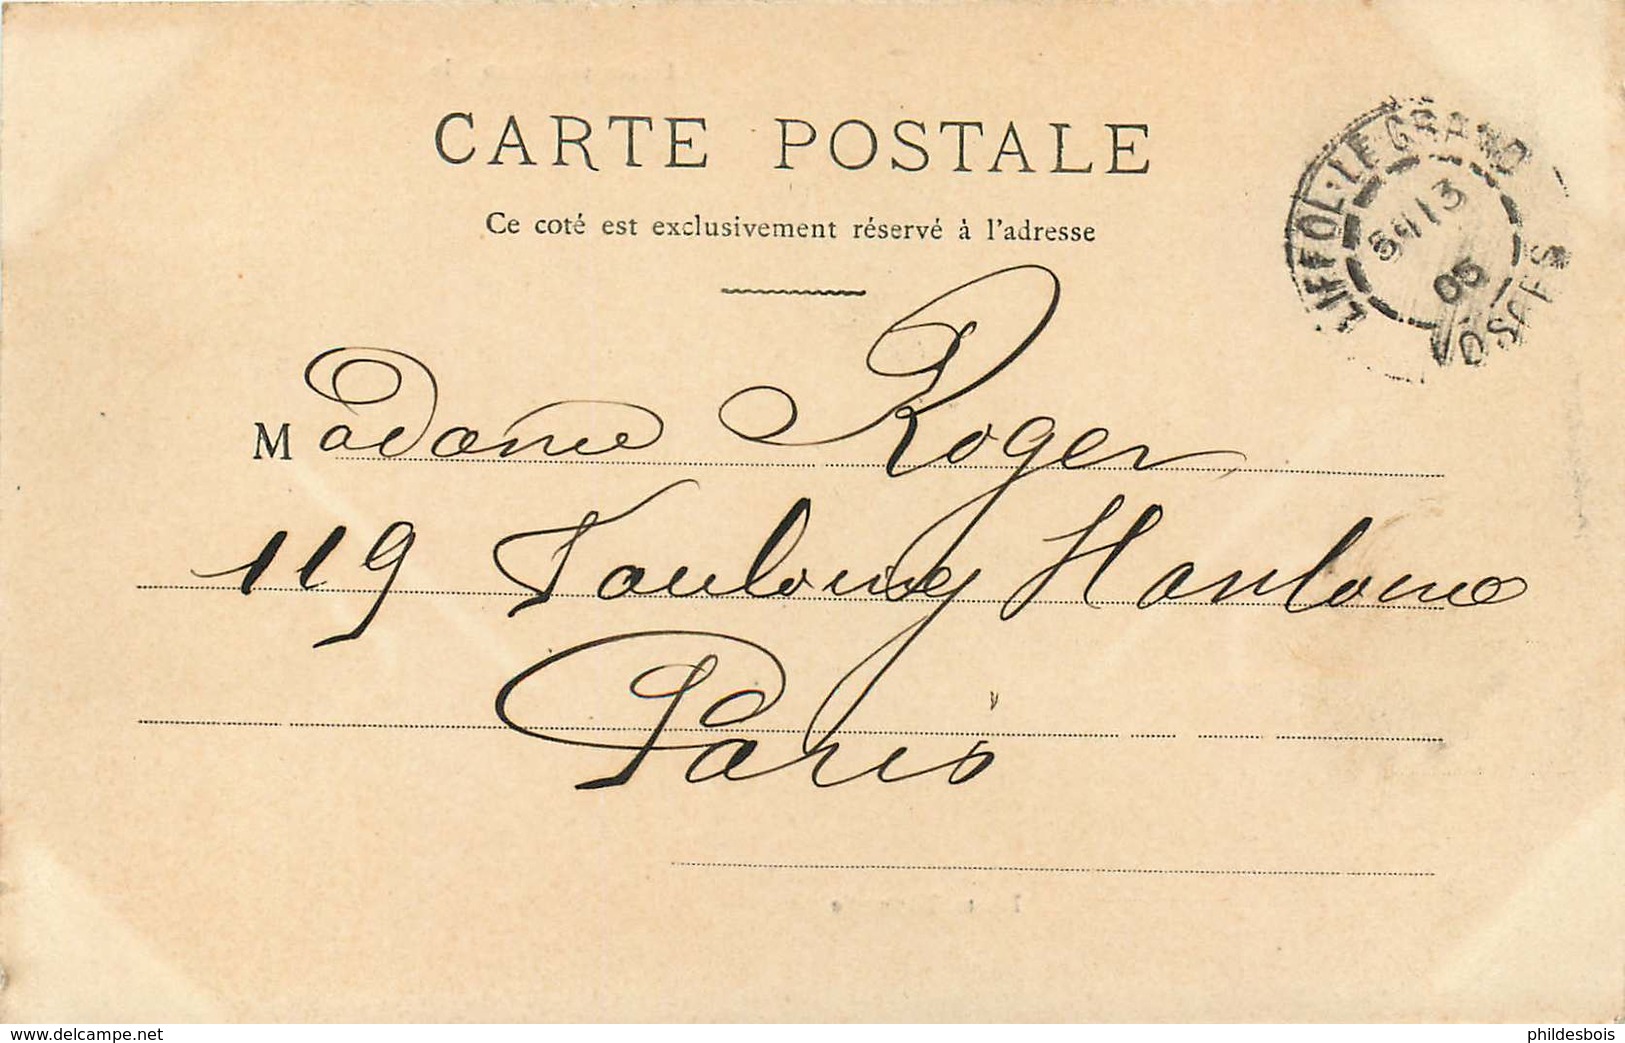 CARTE POSTALE
Ce coté est exclusivement réservé à l'adresse
LIFFOL-LE-GRAND
13
05
VOSGES
Madame Roger
119
Paris
www.delcampe.net
phildesbois